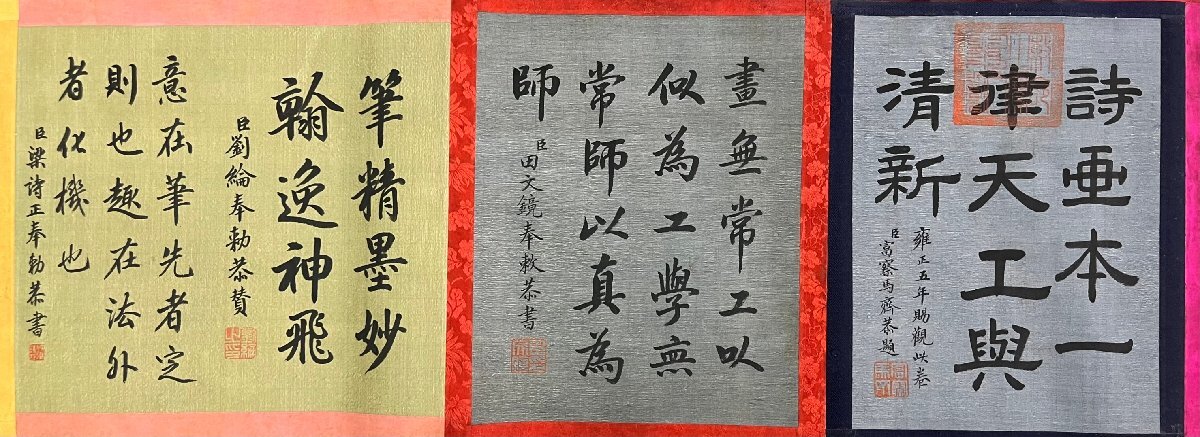 詩画本一
律天工與
清新
雍正五年賜觀此卷
臣富察馬齊恭題
畫無常工以
似為工學無
常師以真為
師
臣田文鏡奉敕恭書
筆精墨妙
翰逸神飛
臣劉綸奉勅恭贊
意在筆先者定
則也趣在法外
者化機也
臣梁詩正奉勅恭書